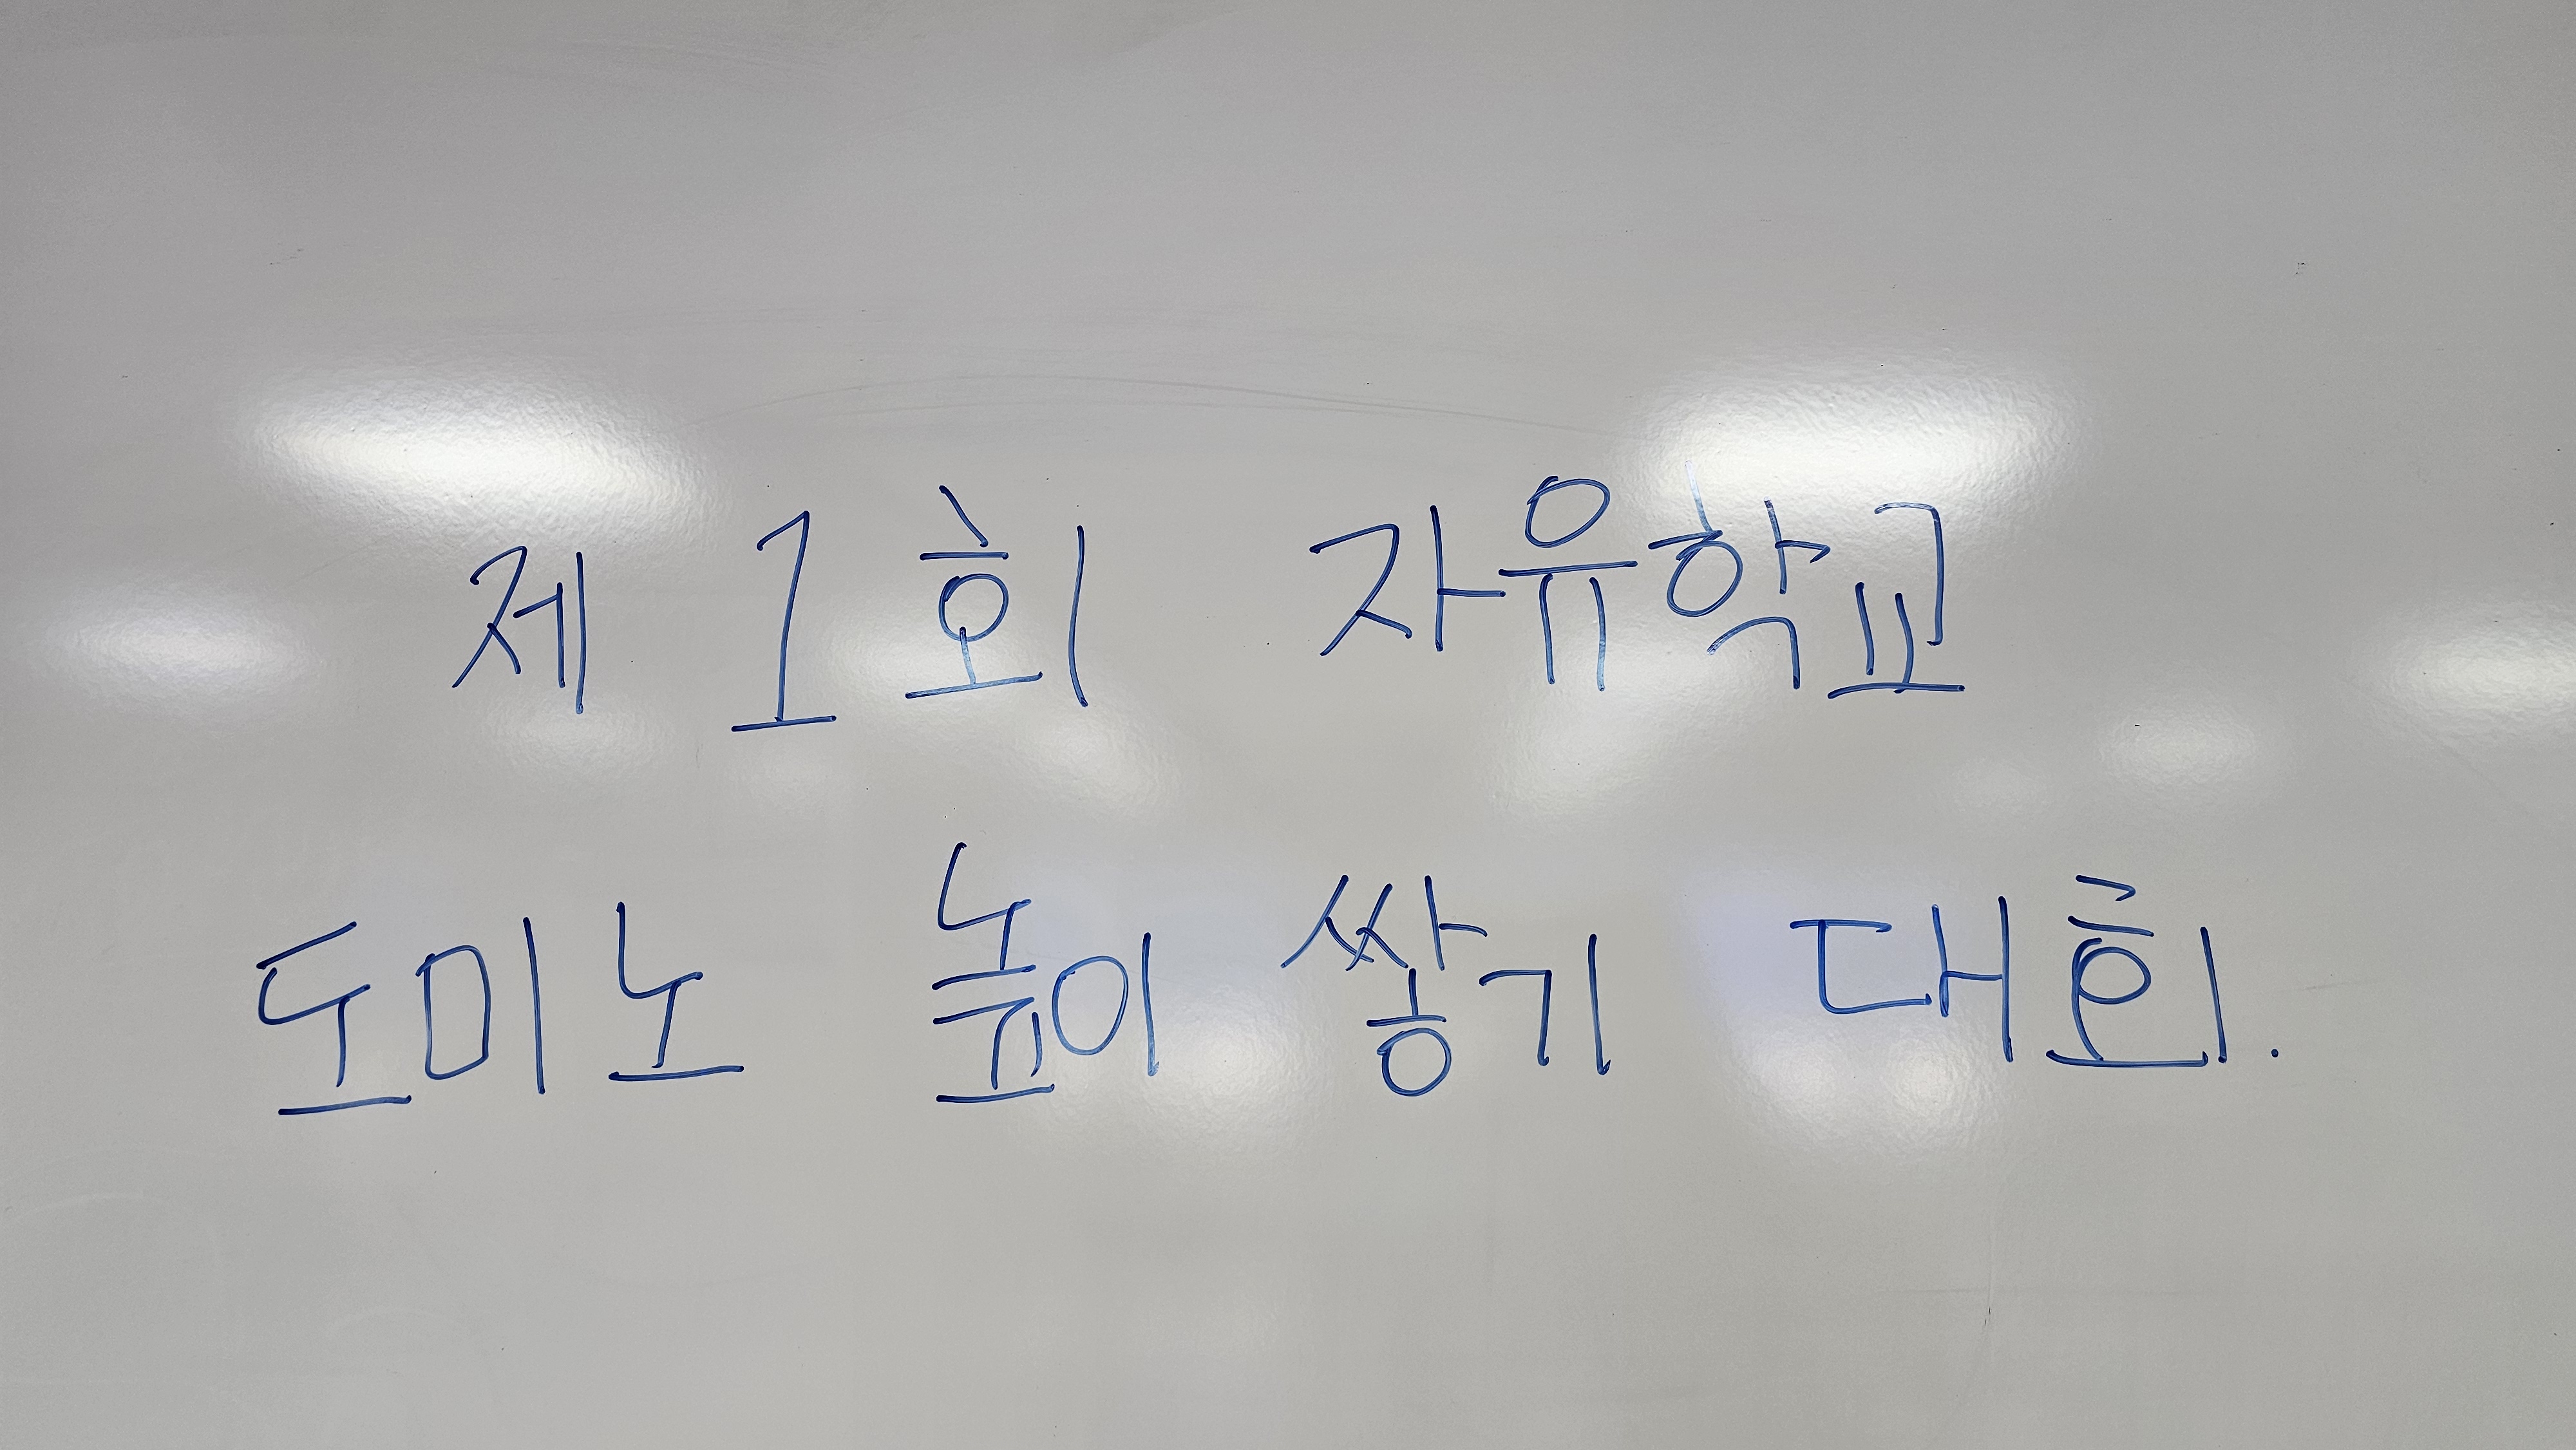 제 1회 자유학교
도미노 높이 쌓기 대회.